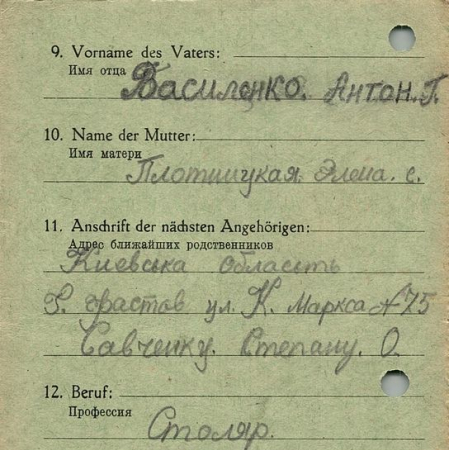 9. Vorname des Vaters:
Имя отца
Василенко. Антон. Г.
10. Name der Mutter:
Имя матери
Плотницкая. Элема. с.
11. Anschrift der nächsten Angehörigen:
Адрес ближайших родственников
Киевська область
фастов ул. К. Маркса №75
Савченку. Степану. О.
12. Beruf:
Профессия
Столяр.